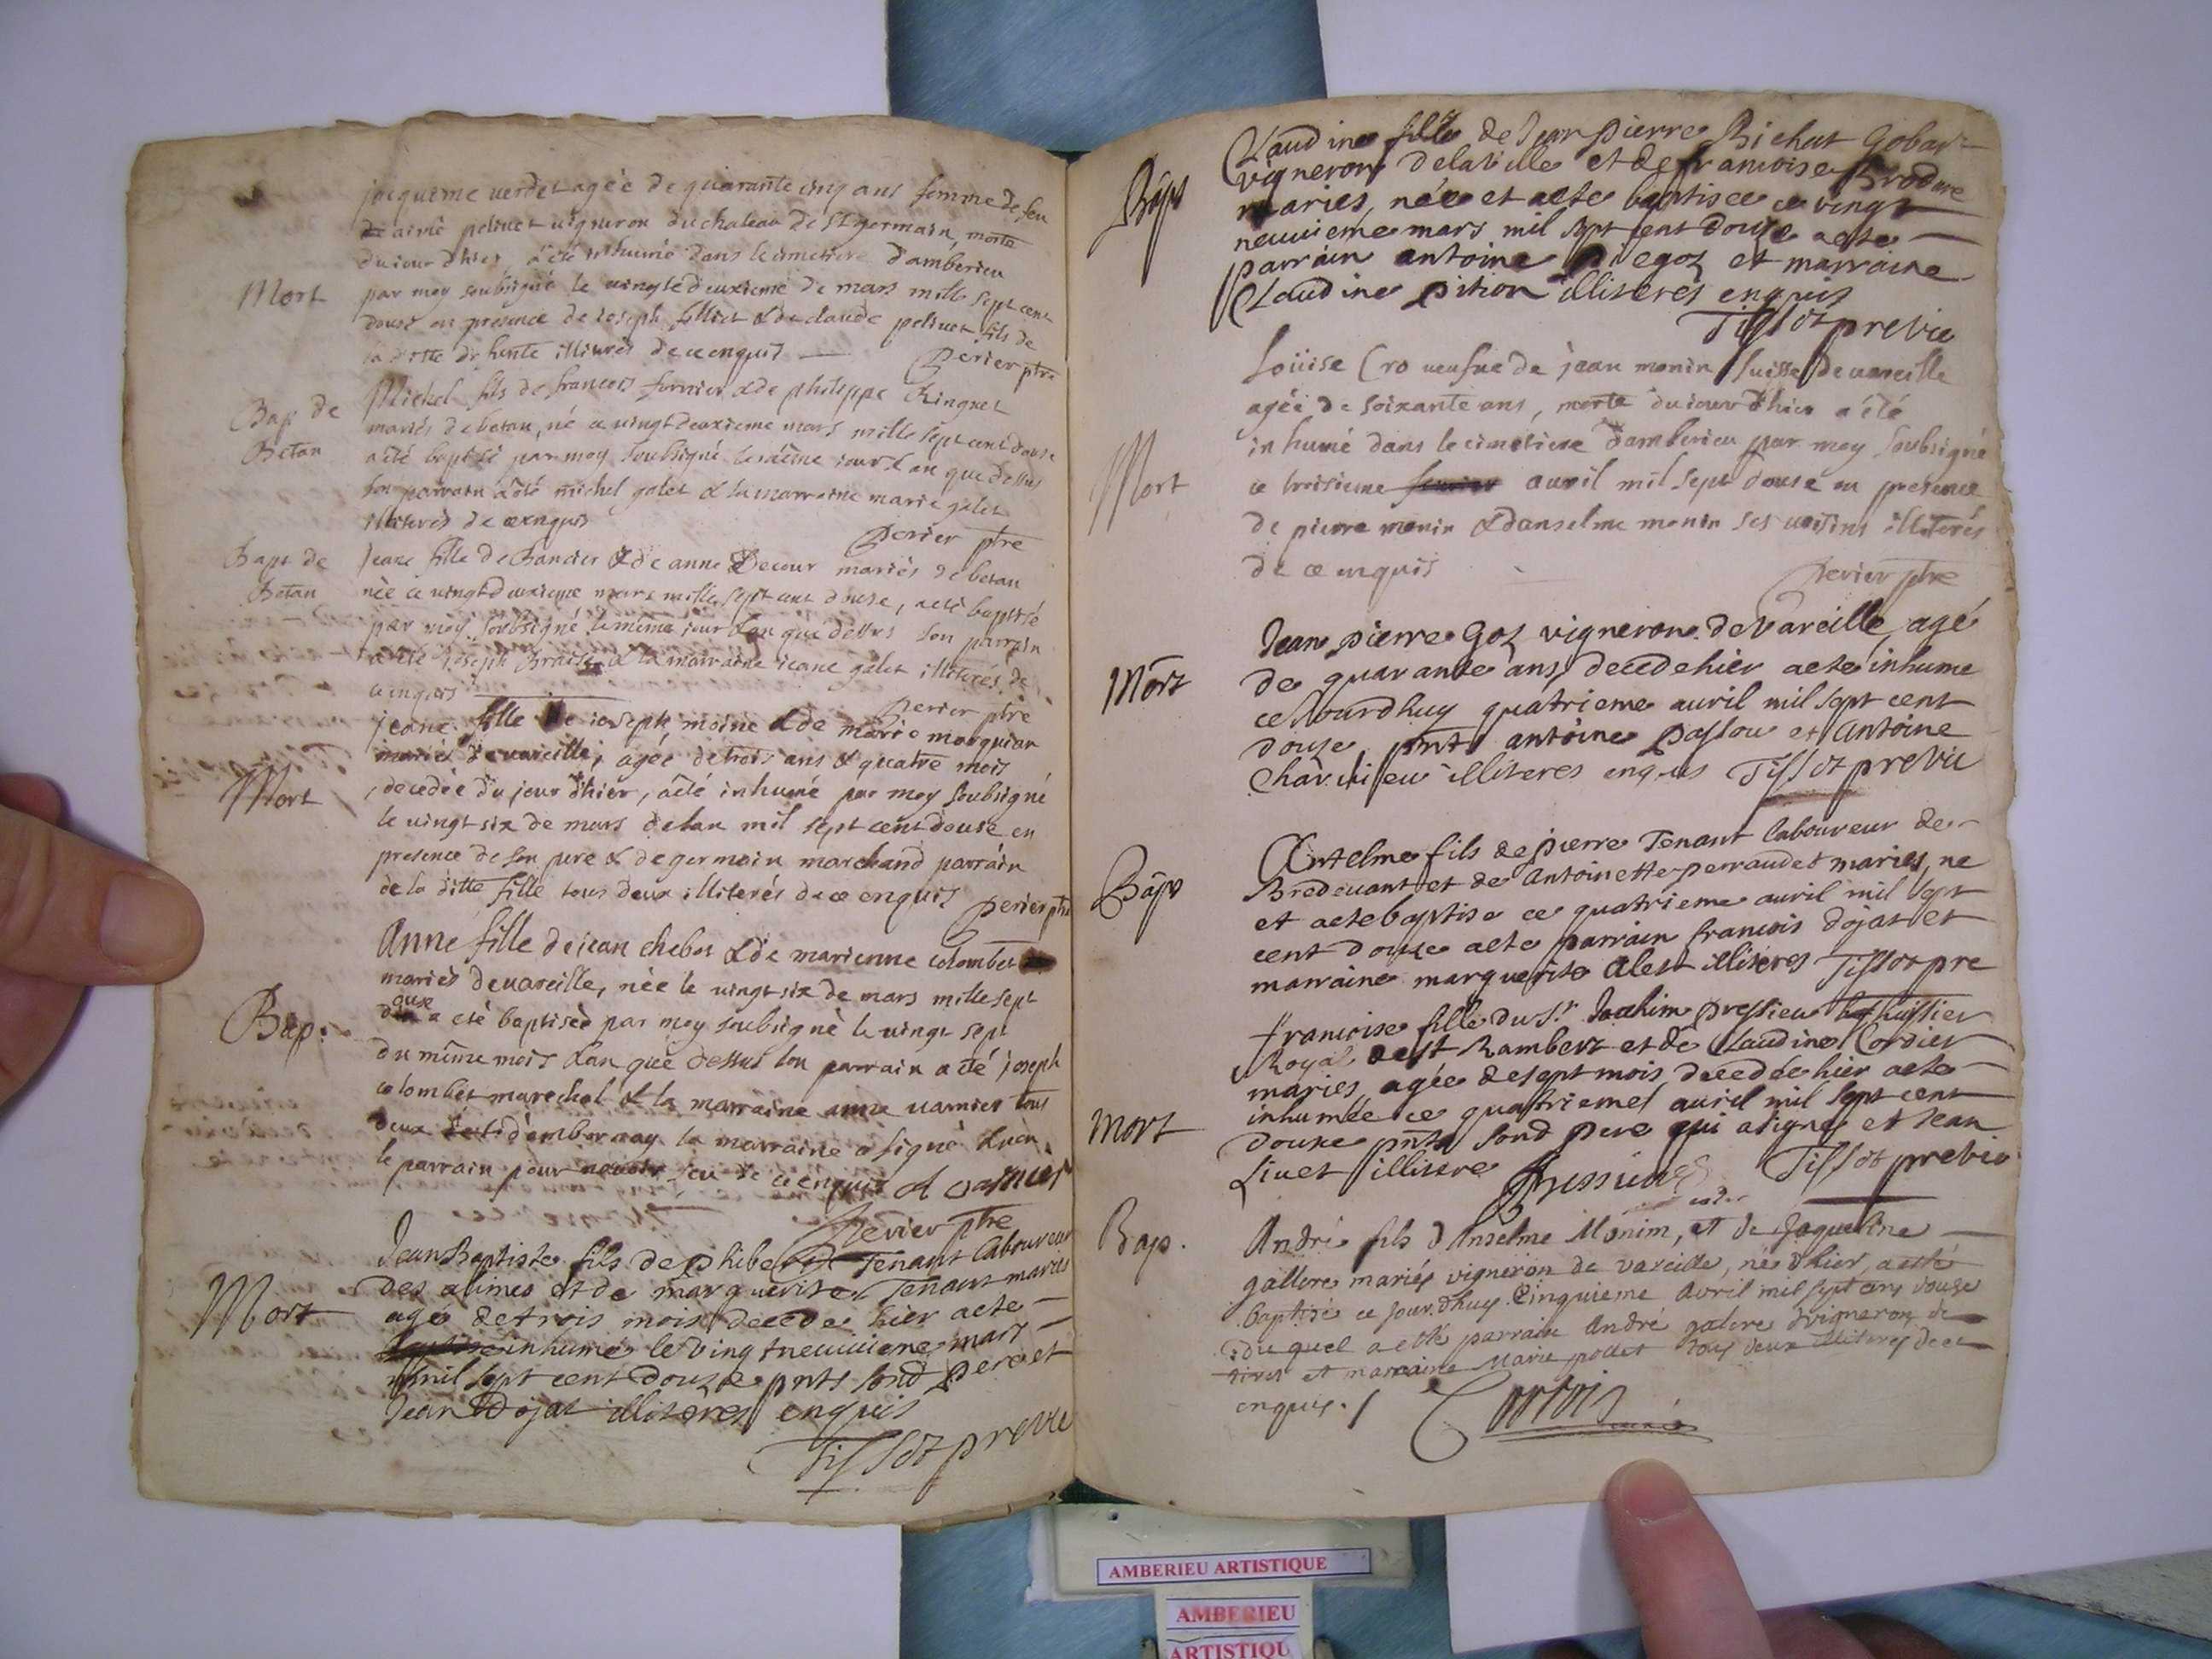 jacqueme verdet agée de quarante cinq ans femme de feu
aimé pelinet vigneron du chateau de St germain morte
du iour dhier, a été inhumé dans le cimetiere d'amberieu
Mort
par moy soubsigné le vingtedeuxieme de mars mille sept cent
douse en presence de ioseph & de claude pelinet fils de
la ditte illiterés de ce enquis
Perier ptre
Michel fils de francois fornier & de philippe Ringuet
Bap de
Betan
mariés de betan, né ce vingtdeuxieme mars mille sept cent douse
a été baptisé par moy soubsigné le même iour & an que dessus
son parrain a été michel galet & la marraine marie galet
illiterés de ce enquis
Perier ptre
Bapt de
Betan
Jeane fille de Bancier & de anne Decour mariés de betan
née ce vingtdeuxieme mars mille sept cent douse, a eté baptisé
par moy soubsigné le même iour & an que dessus son parrain
a été Joseph & la marraine ieane galet illiterés de
ce enquis
Perier ptre
jeane fille de ioseph moine & de marie marquian
mariés de vareille, agée de trois ans & quatre mois
Mort
decedée du jour d'hier, a été inhumé par moy soubsigné
le vingt six de mars de lan mil sept cent douse en
presence de son pere & de germain marchand parrain
de la ditte fille tous deux illiterés de ce enquis
Perier ptre
Anne fille de jean chebot & de marienne colombet
mariés de vareille, née le vingt six de mars mille sept
ouse
Bap:
a eté baptiséé par moy soubsigné le vingt sept
du même mois & an que dessus son parrain a été joseph
colombet marechal & la marraine anne varnier tous
deux d'ambernay la marraine a signé & non
le parrain pour de ce enquis A varnier
Perier ptre
Jean Baptiste fils de Phibert Tenant laboureur
des alimes et de marguerite Tenant mariés
Mort
agé de trois mois decede hier a ete
inhumé le vingtneuvieme mars
mil sept cent douze pnts sond pere et
Jean Dojat illiteres enquis
Tissot previc
Claudine fille de Jean pierre Bichat Gobar
Bapt
vigneron delaville et de francoise Brodure
maries, née et a ete baptisee ce vingt
neuvieme mars mil sept cent douze a ete
parrain antoine Diegoz et marraine
Claudine pition illiteres enquis
Tissot previc
Loüise Cro veufue de jean monin suisse de vareille
agée de soixante ans, morte du iour d'hier a été
inhumé dans le cimetiere d'amberieu par moy soubsigné
Mort
ce troisieme avril mil sept douse en presence
de pierre monin & danselme monin ses voisins illiterés
de ce enquis
Perier ptre
Jean pierre Goz vigneron de Vareille, agé
Mort
de quarante ans, decede hier a ete inhume
cejourdhuy quatrieme avril mil sept cent
douze pnts antoine passou et antoine
Chardieu illiteres enquis Tissot previc
Antelme fils de pierre Tenant laboureur de
Bapt
Bredevant et de antoinette perraudet maries, ne
et a ete baptise ce quatrieme avril mil sept
cent douze a ete parrain francois dojat et
marraine marguerite alest illiteres Tissot pre
francoise fille du Sr Joachim pressieu huissier
Royal de St Rambert et de Claudine Cordier
maries, agée de sept mois decedée hier a ete
Mort
inhumée ce quatrieme avril mil sept cent
douze pnts sond pere qui a signe et Jean
Livet illitere Pressieu Tissot previc
Bap.
André fils d'Anselme Monin, et de Jaqueline
gallere mariés vigneron de vareille, né d'hier, a esté
baptisé ce jour-dhuy cinquieme Avril mil sept cens douze
duquel a esté parrain André galere vigneron de
tiret et marraine Marie pollet tous deux illiterés de ce
enquis./
Corbois
curé
AMBERIEU ARTISTIQUE
AMBERIEU
ARTISTIQU